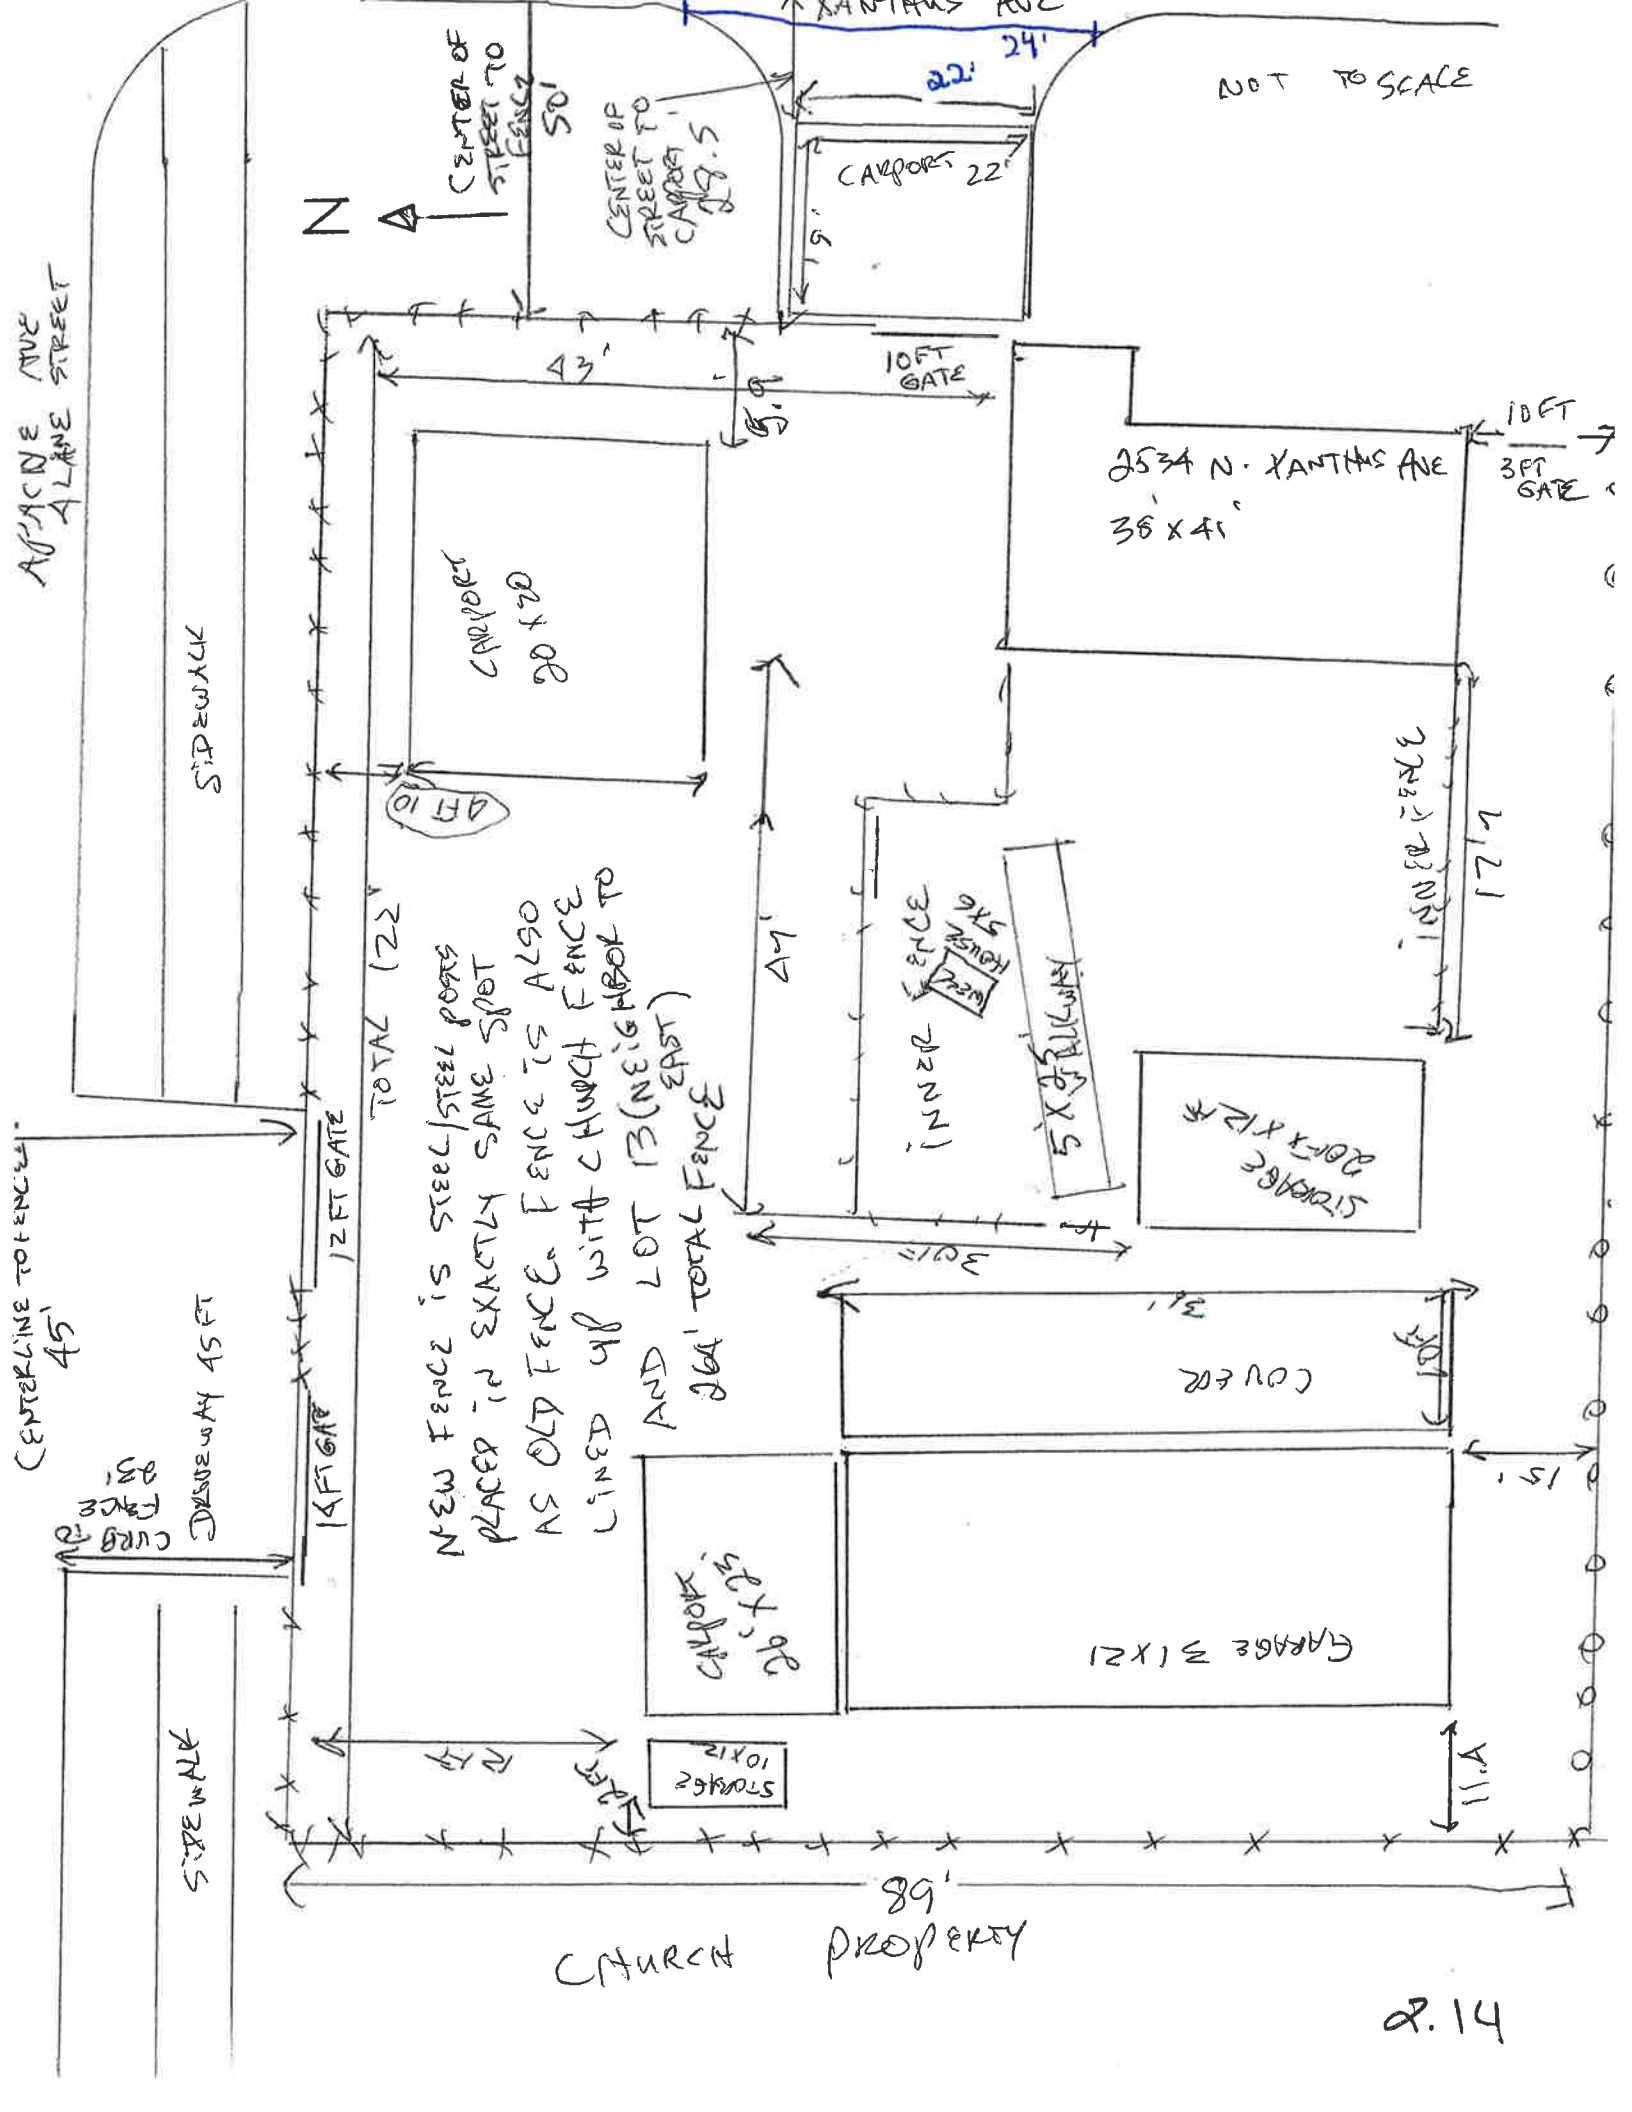 XANTHUS AVE
24'
22'
NOT TO SCALE
CENTER OF
STREET TO
FENCE
50'
CENTER OF
STREET TO
CARPORT
28.5'
CARPORT 22'
19'
N
APACHE AVE
4 LANE STREET
SIDEWALK
43'
10FT
GATE
10FT
3FT
GATE
2534 N. XANTHUS AVE
38' X 41'
CARPORT
20 X 20
4FT 10
TOTAL 122'
47'
INNER FENCE
INNER
FENCE
WELL
HOUSE
5X6
5 X 25
WALKWAY
STORAGE
20FT X 12 FT
CENTERLINE TO FENCE
45'
12FT GATE
DRIVEWAY 45FT
14FT GATE
CURB
TO
FENCE
23'
NEW FENCE IS STEEL/STEEL POSTS
PLACED IN EXACTLY SAME SPOT
AS OLD FENCE. FENCE IS ALSO
LINED UP WITH CHURCH FENCE
AND LOT 13 (NEIGHBOR TO
EAST)
264' TOTAL FENCE
31'
10FT
COVER
15'
CARPORT
26' X 23'
GARAGE 31X21
STORAGE
10X12
2FT
SIDEWALK
89'
CHURCH PROPERTY
2.14